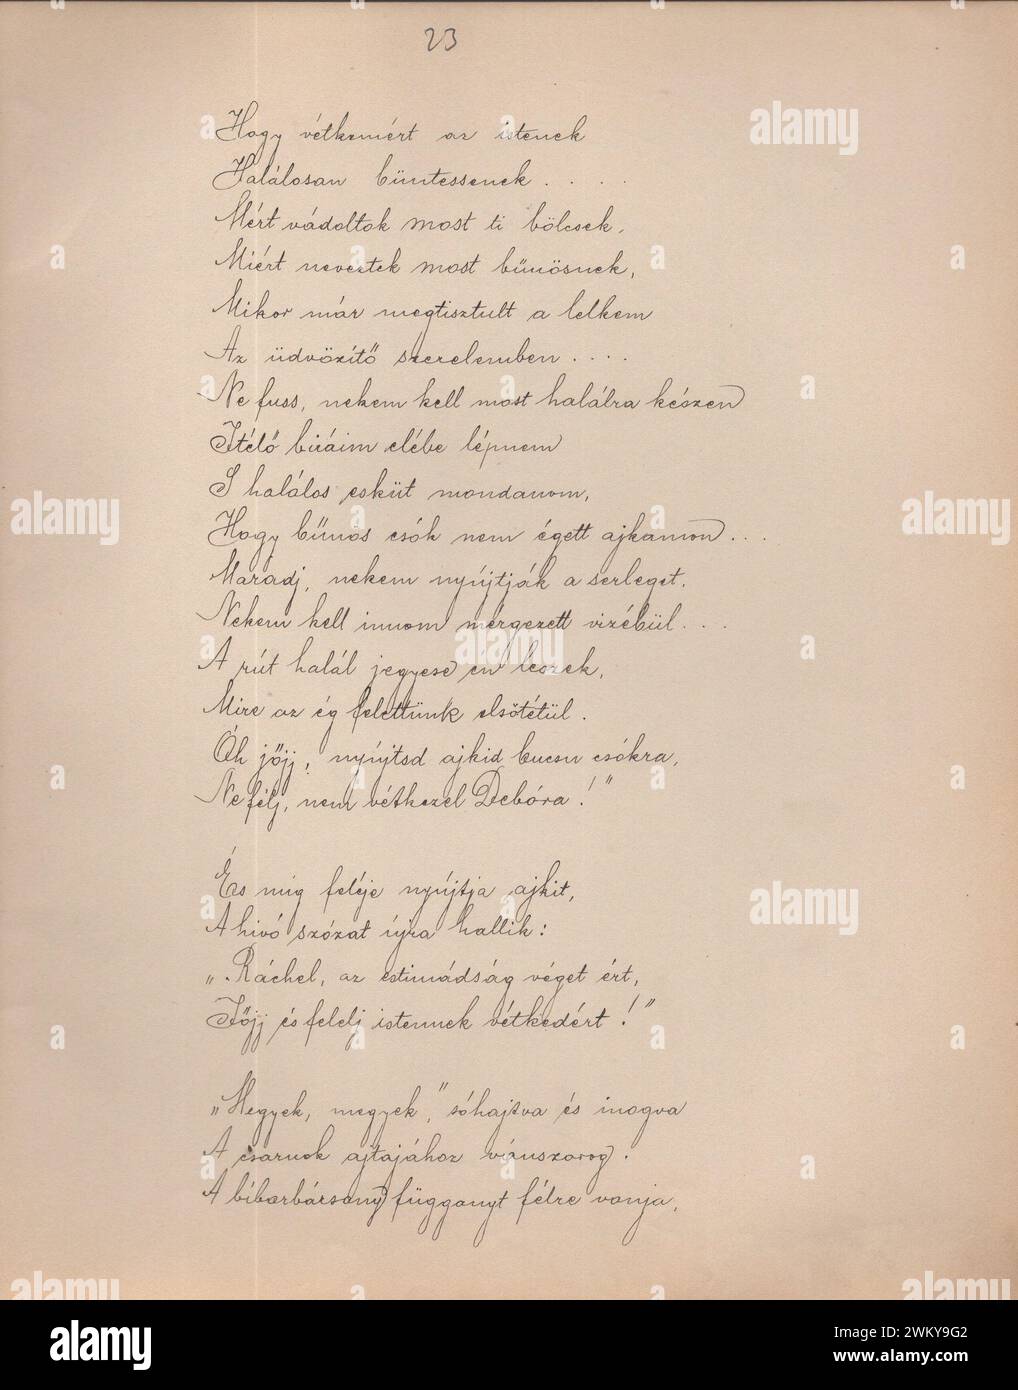 23
Hogy vétkemért az istenek
Halálosan büntessenek . . . .
Mért vádoltok most ti bölcsek,
Miért neveztek most bűnösnek,
Mikor már megtisztult a lelkem
Az üdvözítő szerelemben . . . .
Ne fuss, nekem kell most halálra készen
Itélő biráim elébe lépnem
S halálos esküt mondanom,
Hogy bűnös csók nem égett ajkamon . . .
Maradj, nekem nyújtják a serleget,
Nekem kell innom mérgezett vizébül . . .
A rút halál jegyese én leszek,
Mire az ég felettünk elsötétül.
Óh jőjj, nyújtsd ajkid bucsu csókra,
Ne félj, nem vétkezel Debóra!"
És mig feléje nyújtja ajkit,
A hivó szózat újra hallik:
„Ráchel, az estimádság véget ért,
Jőjj és felelj istennek vétkedért!"
„Megyek, megyek," sóhajtva és inogva
A csarnok ajtajához vánszorog.
A bibarbársony függanyt félre vonja,
alamy
Image ID: 2WKY9G2
www.alamy.com